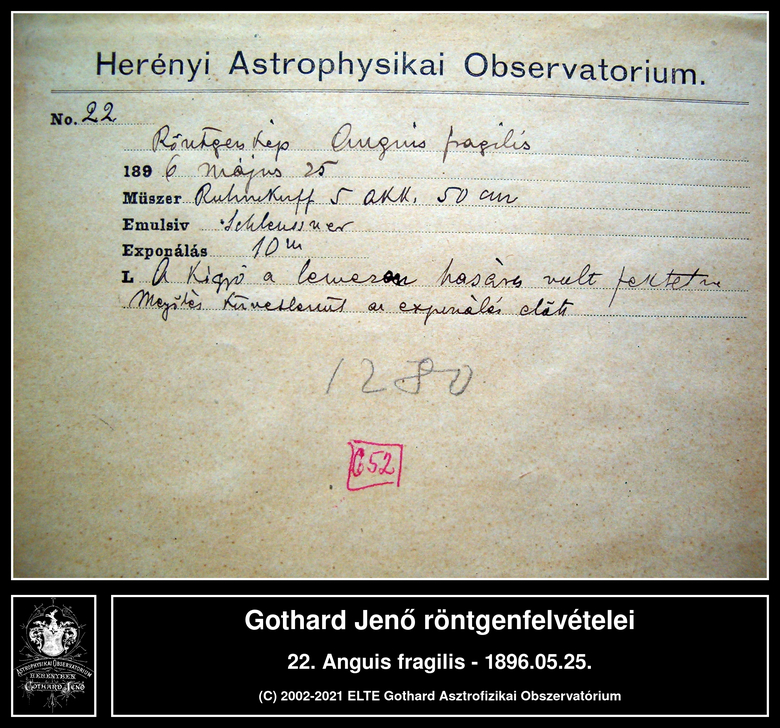 Herényi Astrophysikai Observatorium.
No. 22
Röntgenkép Anguis fragilis
1896 május 25
Müszer Ruhmkorff 5 akk. 50 cm
Emulsiv Schleussner
Exponálás 10m
L A kigyó a lemezen hasára volt fektetve
közvetlenül az exponálás előtt
1280
G52
ASTROPHYSIKAI OBSERVATORIUM
HERÉNYBEN
GOTHARD JENŐ
Gothard Jenő röntgenfelvételei
22. Anguis fragilis - 1896.05.25.
(C) 2002-2021 ELTE Gothard Asztrofizikai Obszervatórium